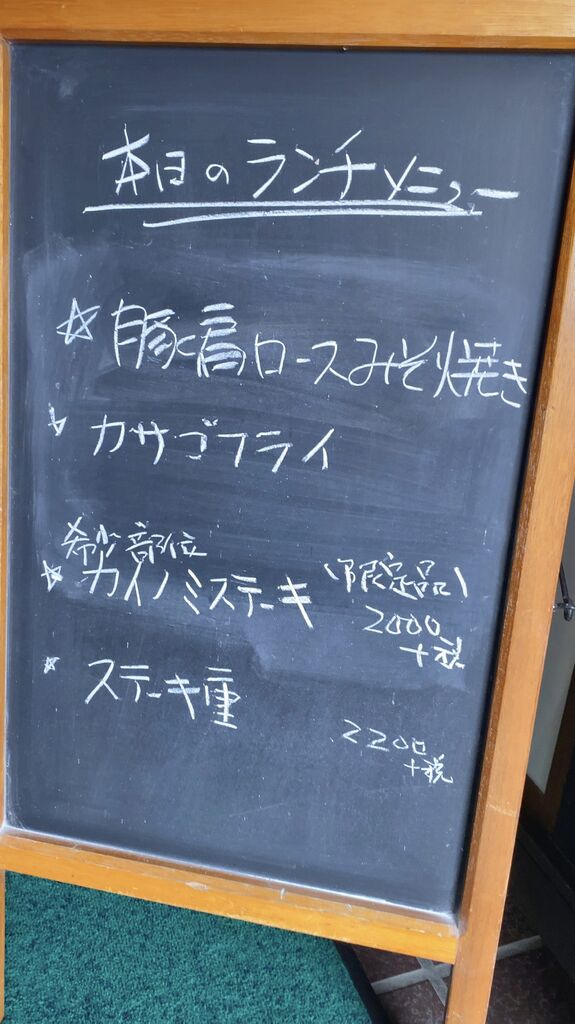 本日のランチメニュー
☆ 豚肩ロースみそ焼き
カサゴフライ
希少部位
☆ カイノミステーキ 限定品
2000
+税
☆ ステーキ重
2200
+税